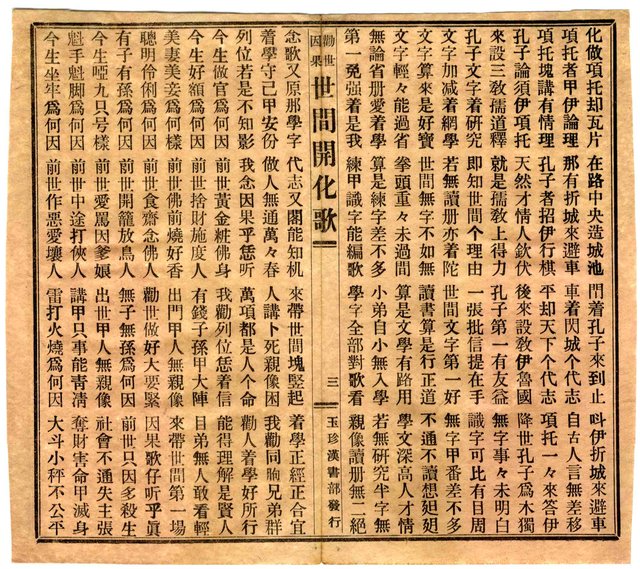 化做項托却瓦片 在路中央造城池 閂着孔子來到止 呌伊折城來避車
項托者甲伊論理 那有折城來避車 車着閃城個代志 自古人言無差移
項托塊講有情理 孔子者招伊行棋 平却天下個代志 項托一々來答伊
孔子論須伊項托 天然才情人欽伏 後來設敎伊魯國 降世孔子爲木獨
來設三敎孺道釋 就是孺敎上得力 孔子第一有友益 無字事々未明白
孔子文字着研究 即知世間个理由 一張批信提在手 識字可比有目周
文字加減着網學 若無讀册亦着陀 世間文字第一好 無字甲番差不多
文字算來是好寶 世間無字不如無 讀書算是行正道 不通不讀想妲妲
文字輕々能過省 拳頭重々未過間 算是文學有路用 學文深高人才情
無論省册愛着學 算是練字差不多 小弟自小無入學 若無研究半字無
第一免强着是我 練甲識字能編歌 學字全部對歌看 親像讀册無二絕
勸世因果 世間開化歌 三 玉珍漢書部發行
念歌又原那學字 代志又閣能知机 來帶世間塊竪起 着學正經正合宜
着學守己甲安份 做人無通萬々春 人講卜死親像困 我勸同胸兄弟群
列位若是不知影 我念因果乎恁听 萬項都是人个命 勸人着學好所行
今生做官爲何因 前世黃金粧佛身 我勸列位恁着信 能得理解是賢人
今生好額爲何因 前世捨財施度人 有錢子孫甲大陣 日弟無人敢看輕
美妻美妾爲何樣 前世佛前燒好香 出門甲人無親像 來帶世間第一場
聰明伶俐爲何因 前世食齋念佛人 勸世做好大要緊 因果歌仔听乎眞
有子有孫爲何因 前世開籠放鳥人 無子無孫爲何因 前世只因多殺生
今生啞九只号樣 前世愛罵因爹娘 出世甲人無親像 社會不通失主張
魁手魁脚爲何因 前世中途打俠人 講甲只事能靑淸 奪財害命甲滅身
今生坐牢爲何因 前世作惡愛壞人 雷打火燒爲何因 大斗小秤不公平